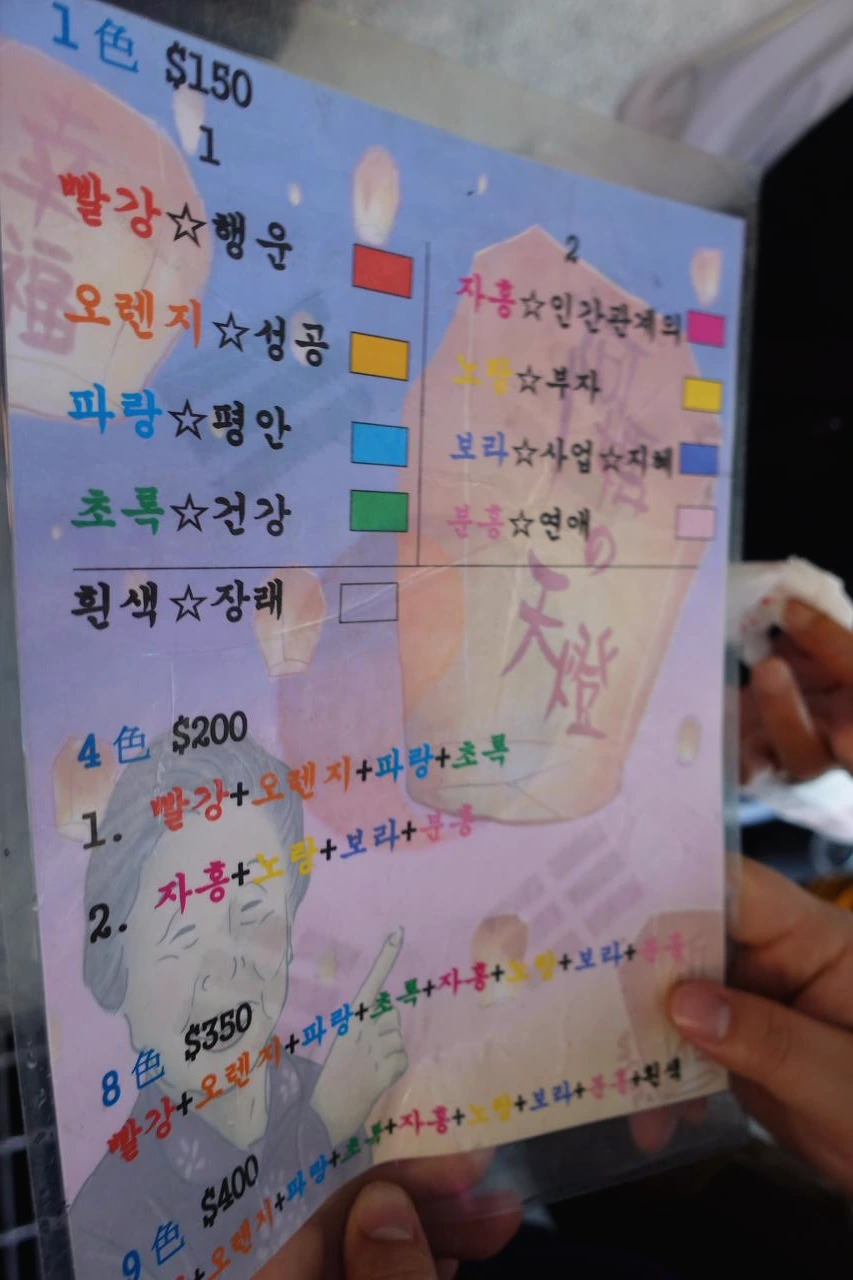 1色 $150
1
빨강☆행운
오렌지☆성공
파랑☆평안
초록☆건강
2
자홍☆인간관계의
노랑☆부자
보라☆사업☆지혜
분홍☆연애
흰색☆장래
幸福
の
天燈
4色 $200
1. 빨강+오렌지+파랑+초록
2. 자홍+노랑+보라+분홍
8色 $350
빨강+오렌지+파랑+초록+자홍+노랑+보라+분홍
9色 $400
오렌지+파랑+초록+자홍+노랑+보라+분홍+흰색